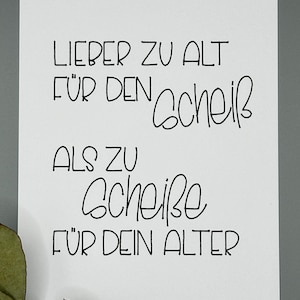 LIEBER ZU ALT
FÜR DEN Scheiß
ALS ZU
Scheiße
FÜR DEIN ALTER